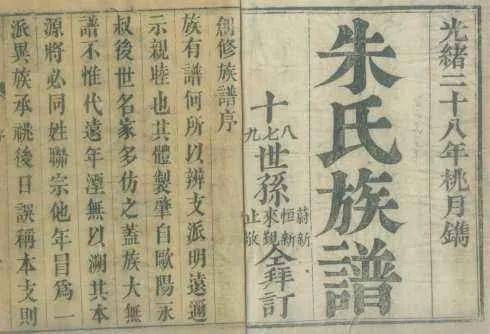 光緒二十八年桃月鐫
朱氏族譜
十八七九世孫蔚新恒新來觀止敬仝拜訂
創修族譜序
族有譜何所以辨支派明遠邇
示親睦也其體製肇自歐陽永
叔後世名家多仿之蓋族大無
譜不惟代遠年湮無以溯其本
源將必同姓聯宗他年冒為一
派異族承祧後日誤稱本支則